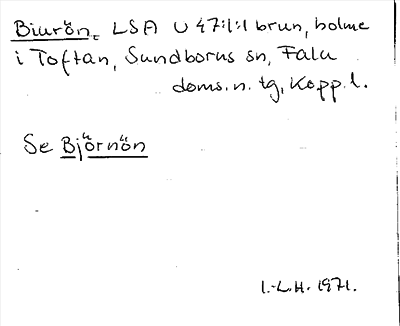 Biurön. LSA U 47:1:1 brun, holme
i Toftan, Sundborns sn, Falu
doms. n. tg, Kopp. l.
Se Björnön
I.-L.H. 1971.